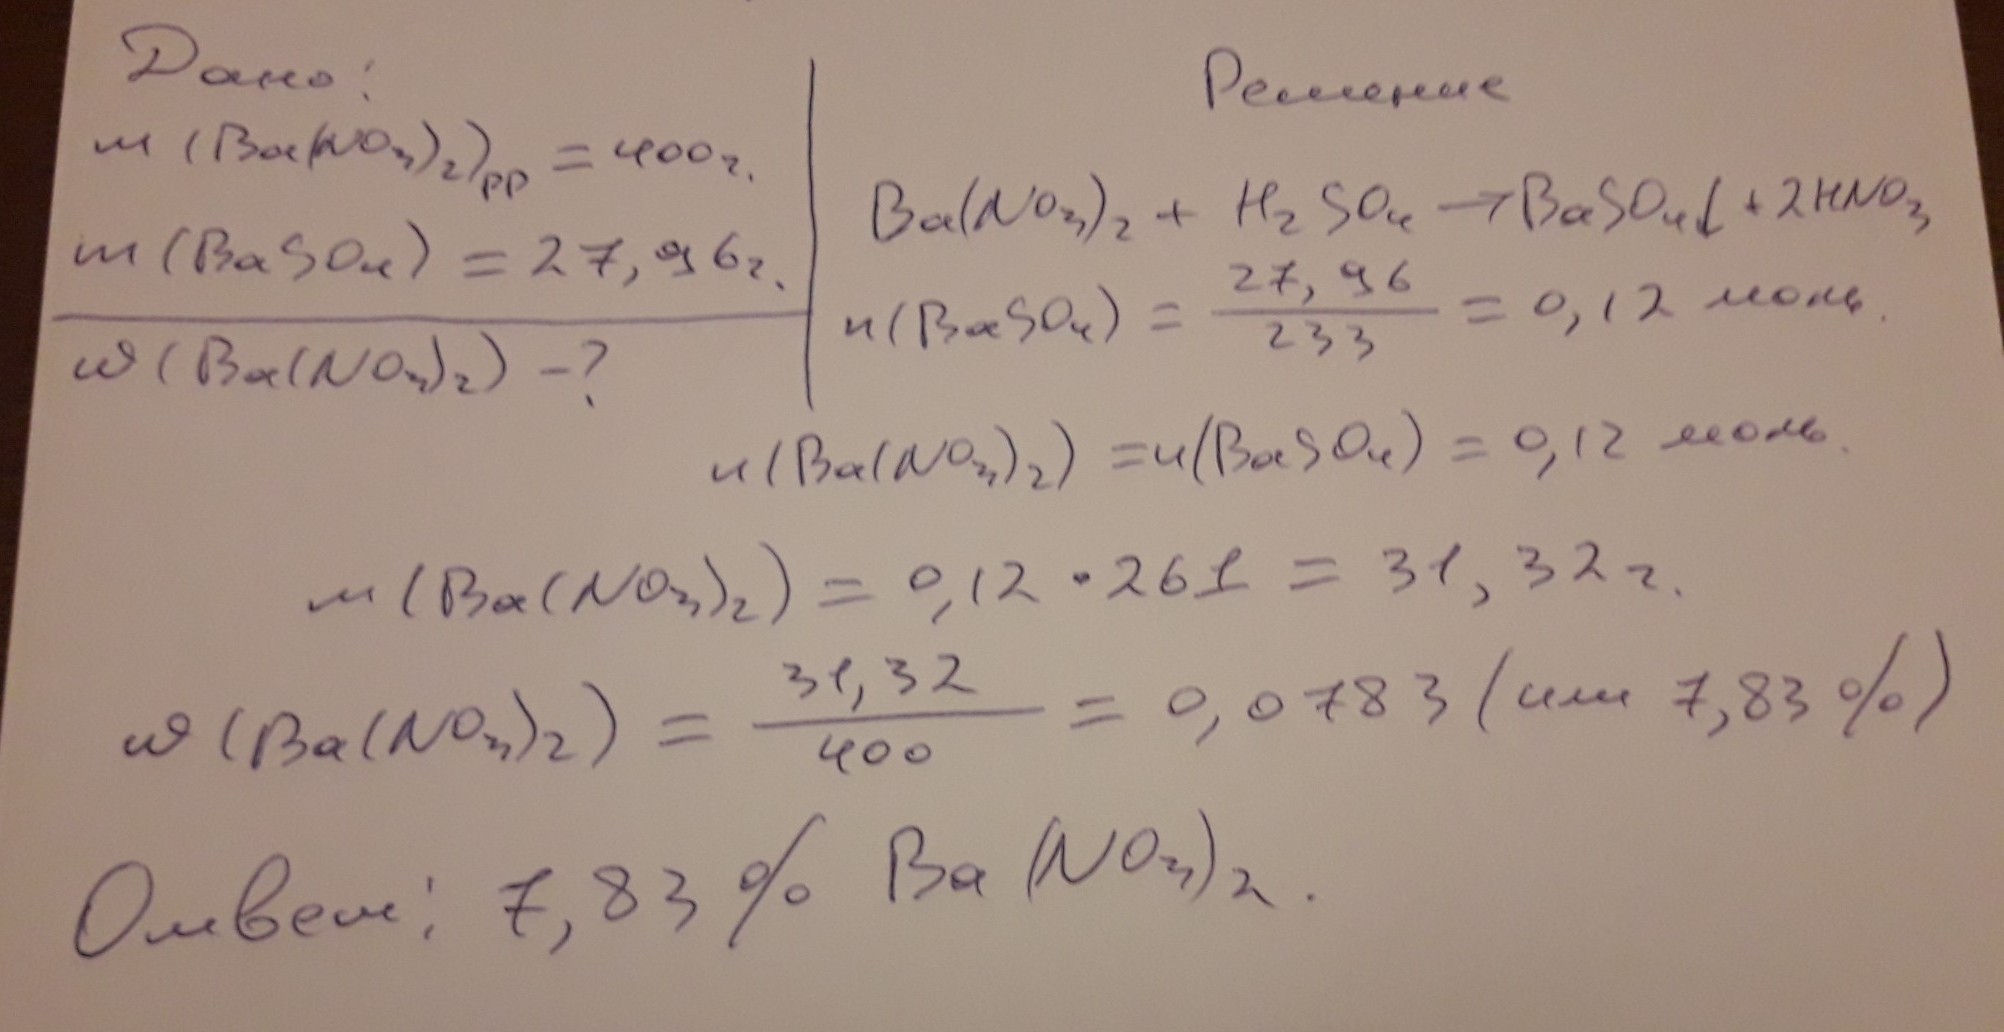 Дано:
m(Ba(NO₃)₂)pp = 400г.
m(BaSO₄) = 27,96г.
ω(Ba(NO₃)₂) -?
Решение
Ba(NO₃)₂ + H₂SO₄ → BaSO₄↓ + 2HNO₃
n(BaSO₄) = 27,96 / 233 = 0,12 моль.
n(Ba(NO₃)₂) = n(BaSO₄) = 0,12 моль.
m(Ba(NO₃)₂) = 0,12 · 261 = 31,32г.
ω(Ba(NO₃)₂) = 31,32 / 400 = 0,0783 (или 7,83%)
Ответ: 7,83% Ba(NO₃)₂.